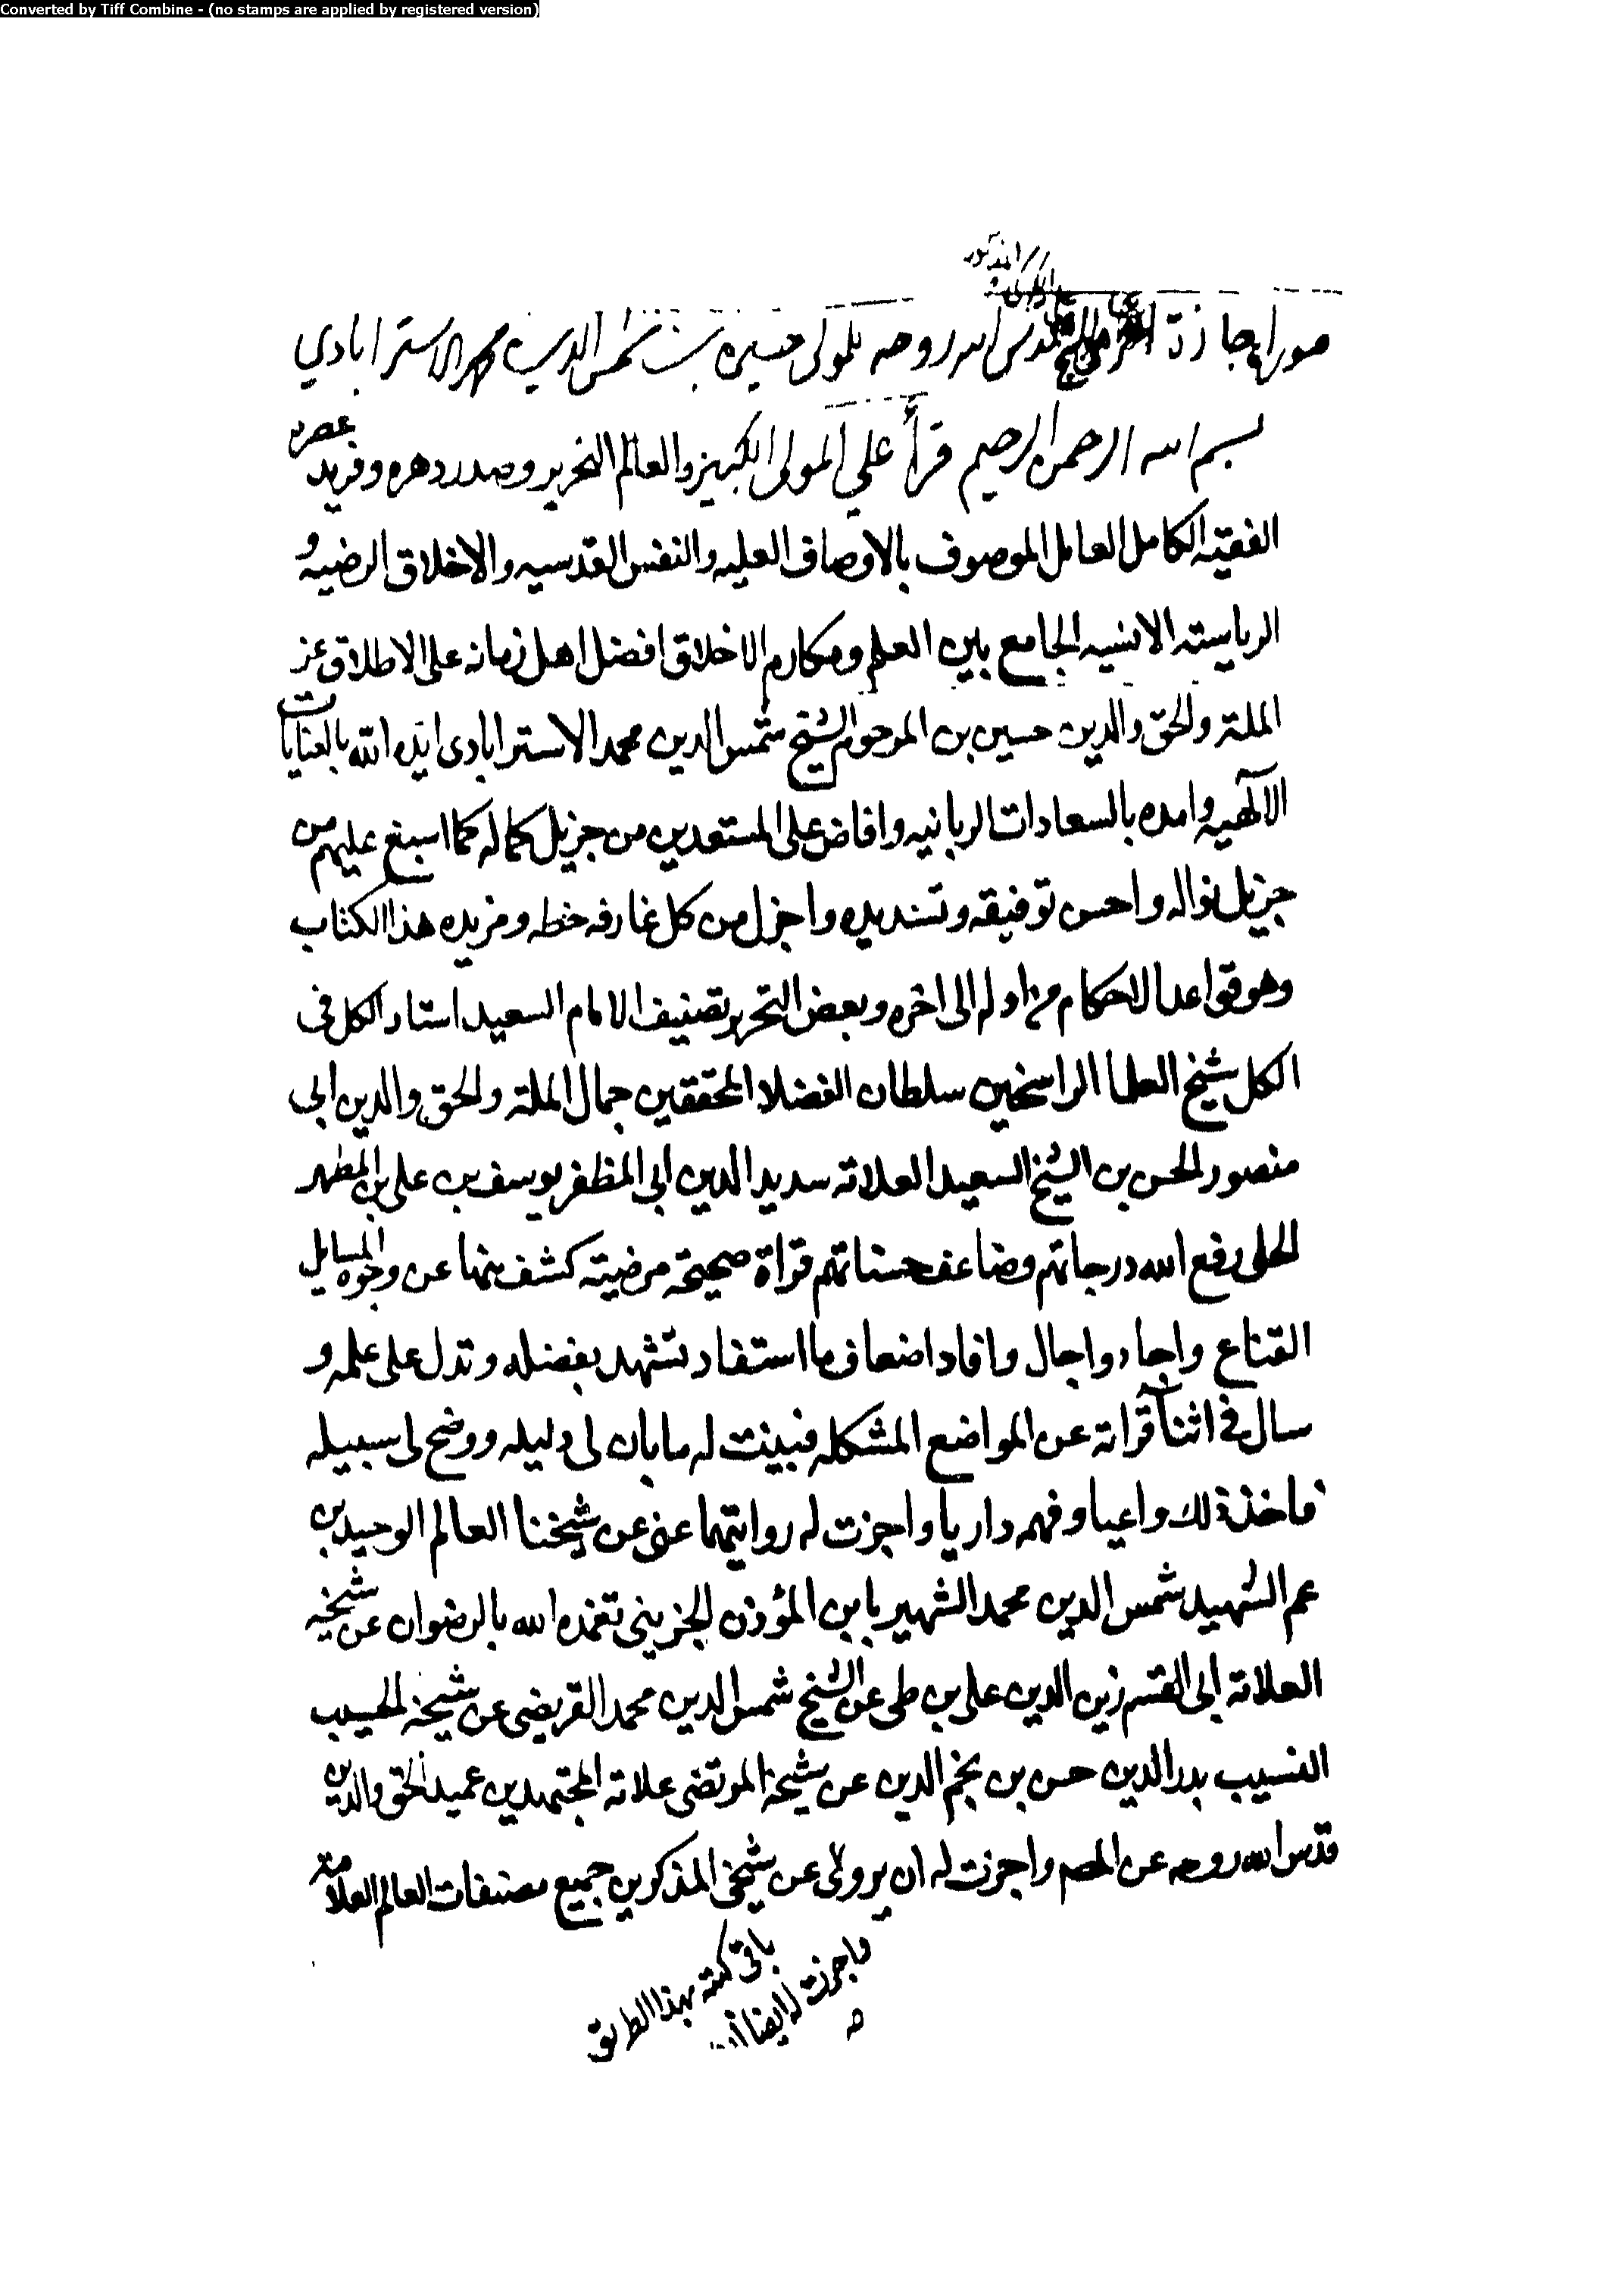 Converted by Tiff Combine - (no stamps are applied by registered version)
المذكور
صورة اجازة الشيخ قدس الله روحه للمولى حسين بن شمس الدين محمد الاسترابادي
بسم الله الرحمن الرحيم قرأ علي المولى الكبير والعالم النحرير وصدر دهره وفريد عصره
الفقيه الكامل العامل الموصوف بالاوصاف العليه والنفس القدسيه والاخلاق الرضيه و
الرياسته الانسيه الجامع بين العلم ومكارم الاخلاق افضل اهل زمانه على الاطلاق عز
الملة والحق والدين حسين بن المرحوم الشيخ شمس الدين محمد الاسترابادى ايده الله بالعنايات
الآلهيه وامده بالسعادات الربانيه وافاض على المستعدين من جزيل كماله كما اسبغ عليهم من
جزيل نواله واحسن توفيقه وتسديده واجزل من كل عارفه حظه ومزيده هذا الكتاب
وهو قواعد الاحكام من اوله الى اخره وبعض التحرير تصنيف الامام السعيد استاد الكل فى
الكل شيخ العلما الراسخين سلطان الفضلا المحققين جمال الملة والحق والدين ابى
منصور الحسن بن الشيخ السعيد العلامة سديد الدين ابى المظفر يوسف بن على بن المطهر
الحلى رفع الله درجاتهم وضاعف حسناتهم قراة صحيحة مرضيته كشف بها عن وجوه المسايل
القناع واجاد واجال وافاد اضعاف ما استفاد تشهد بفضله وتدل على علمه و
سال فى اثنآ قراته عن المواضع المشكله فبينت له ما بان لى دليله ووضح لى سبيله
فاخذ ذلك واعيا وفهمه داريا واجزت له روايتهما عنى عن شيخنا العالم الوحيد بن
عم الشهيد شمس الدين محمد الشهير بابن المؤذن الجزينى تغمده الله بالرضوان عن شيخه
العلامة ابى القسم زين الدين على بن طى عن الشيخ شمس الدين محمد العريضى عن شيخه الحسيب
النسيب بدر الدين حسن بن نجم الدين عن شيخه المرتضى علامة المجتهدين عميد الحق والدين
قدس الله روحه عن المصم واجزت له ان يروى عن شيخى المذكورين جميع مصنفات العالم العلامة
واجزت له ايضا
باقى كتبه بهذا الطريق